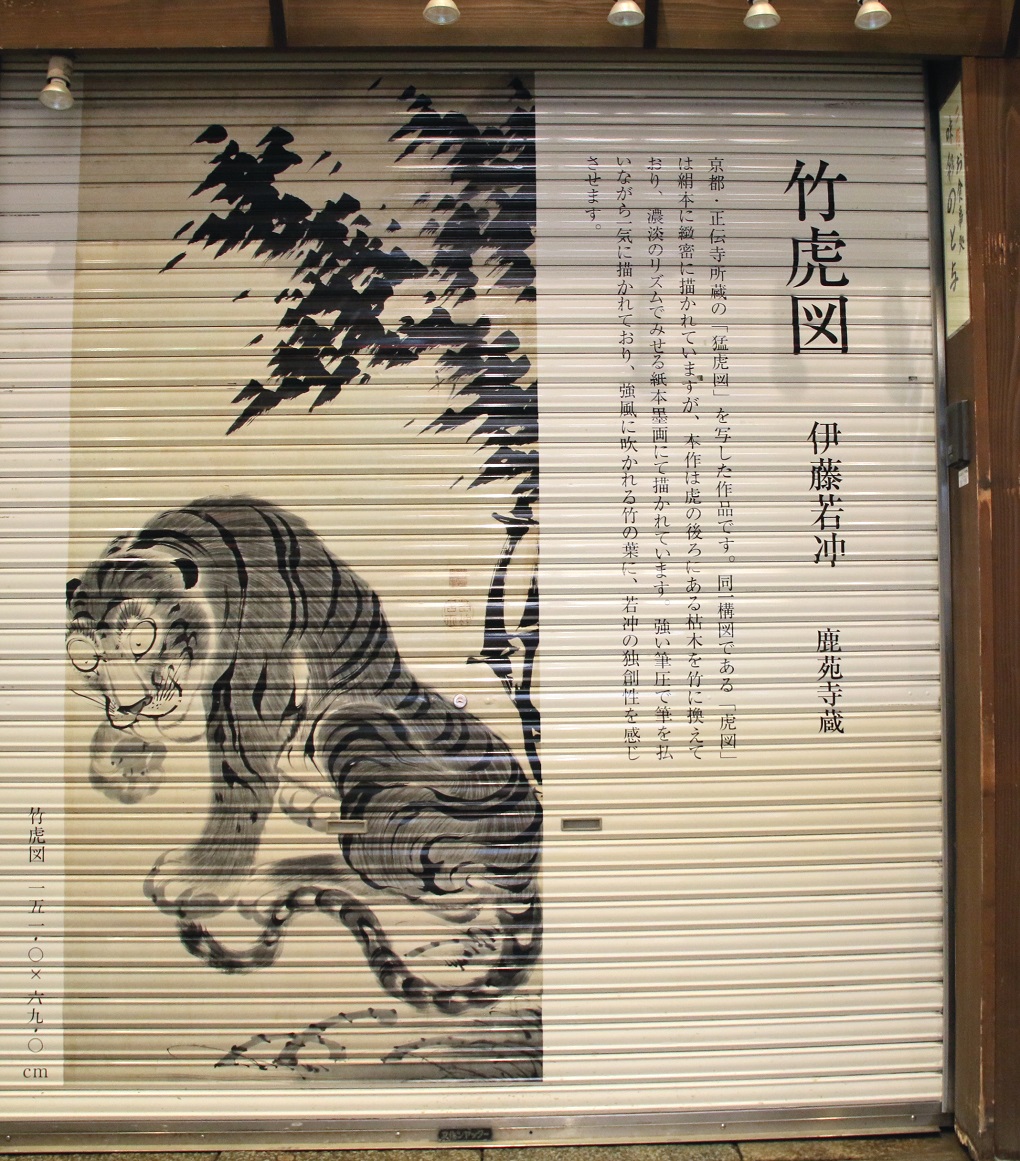 竹虎図
伊藤若冲
鹿苑寺蔵
京都・正伝寺所蔵の「猛虎図」を写した作品です。同一構図である「虎図」
は絹本に緻密に描かれていますが、本作は虎の後ろにある枯木を竹に換えて
おり、濃淡のリズムでみせる紙本墨画にて描かれています。強い筆圧で筆を払
いながら一気に描かれており、強風に吹かれる竹の葉に、若冲の独創性を感じ
させます。
竹虎図 一五一・〇×六九・〇cm